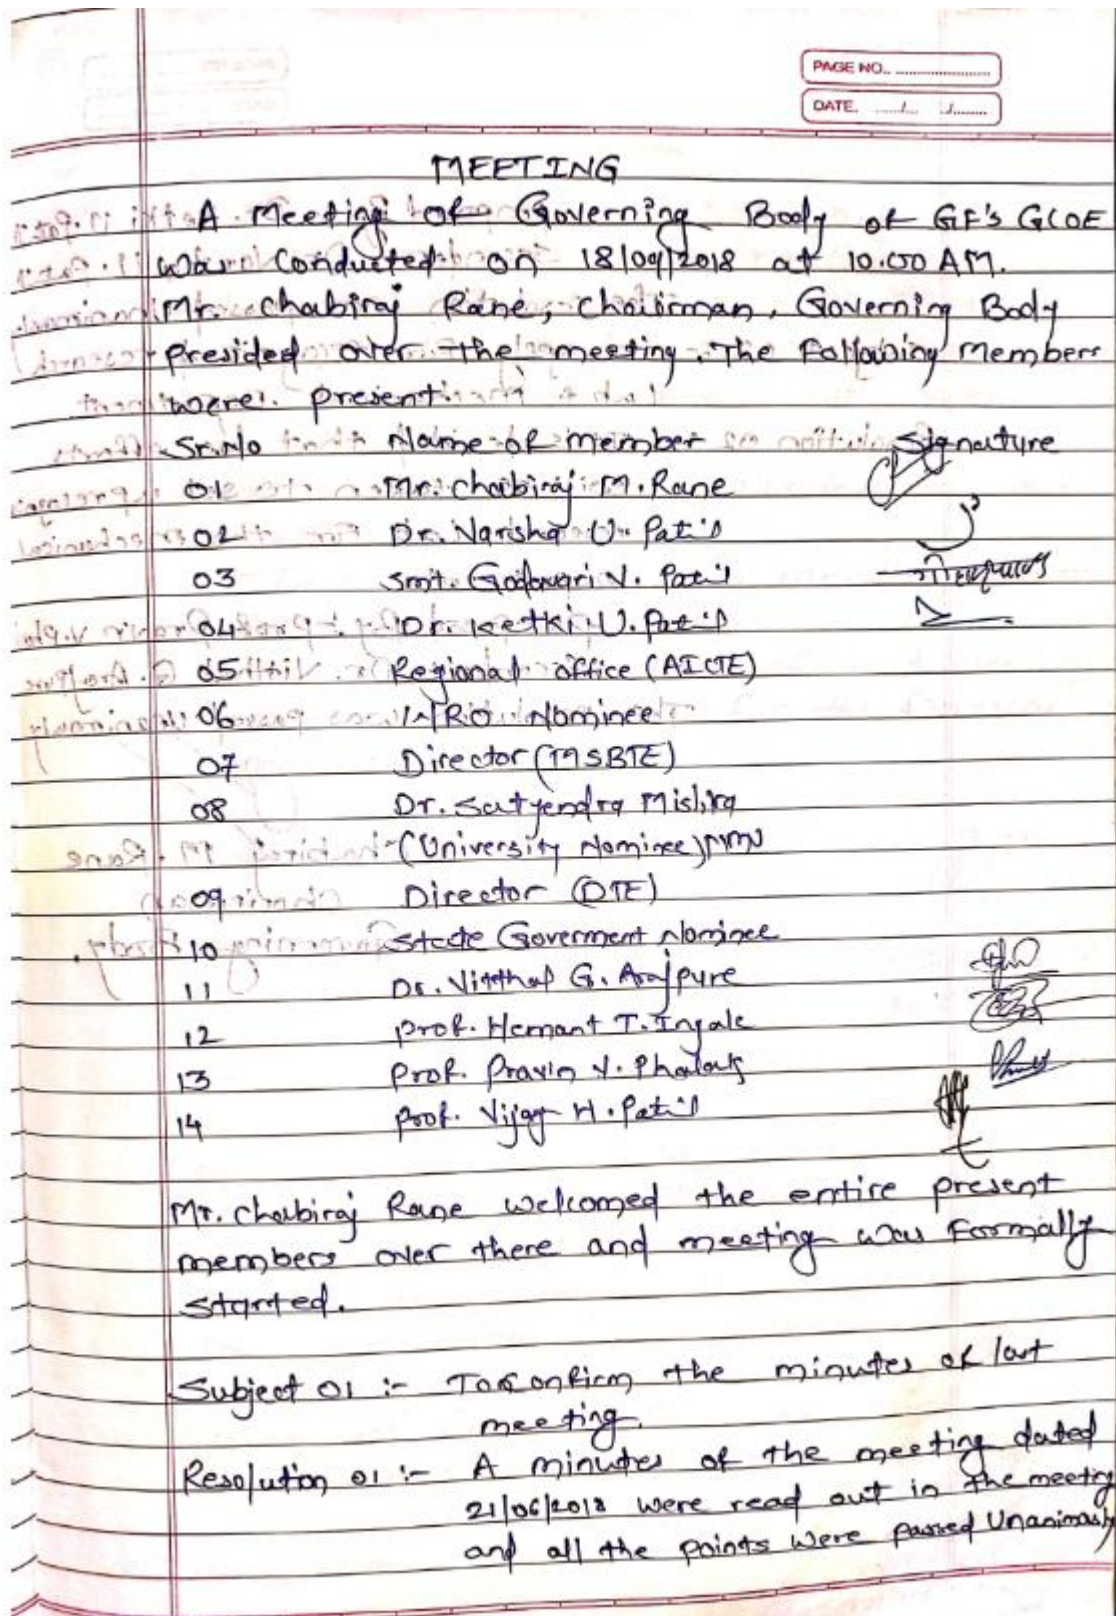 PAGE NO..
DATE.
MEETING
A Meeting of Governing Body of GF's GCOE
was Conducted on 18/09/2018 at 10.00 AM.
Mr. Chabiraj Rane, Chairman, Governing Body
presided over the meeting. The Following Members
were present.
Sr.No Name of member Signature
01 Mr. Chabiraj M. Rane
02 Dr. Varsha U. Patil
03 Smt. Godavari V. Patil
04 Dr. Ketki U. Patil
05 Regional office (AICTE)
06 Nominee
07 Director (MSBTE)
08 Dr. Satyendra Mishra
(University Nominee) NMU
09 Director (DTE)
10 State Goverment Nominee
11 Dr. Vitthal G. Arajpure
12 Prof. Hemant T. Ingale
13 Prof. Pravin V. Phalak
14 Prof. Vijay H. Patil
Mr. Chabiraj Rane welcomed the entire present
members over there and meeting was Formally
started.
Subject 01 :- To confirm the minutes of last
meeting.
Resolution 01 :- A minutes of the meeting dated
21/06/2018 were read out in the meeting
and all the points were passed Unanimasly